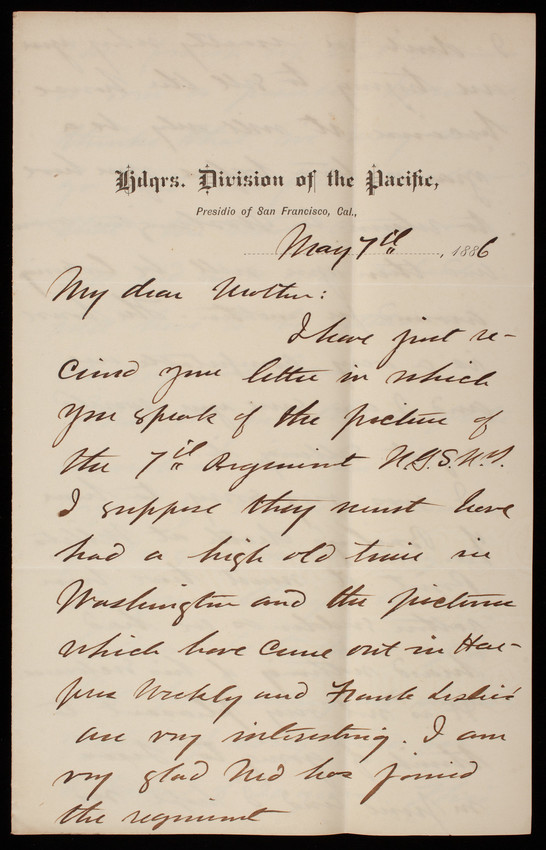 Hdqrs. Division of the Pacific,
Presidio of San Francisco, Cal.,
May 7th, 1886
My dear Mother:
I have just re-
ceived your letter in which
you speak of the picture of
the 7th Regiment N.G.S.N.Y.
I suppose they must have
had a high old time in
Washington and the pictures
which have come out in Har-
pers Weekly and Frank Leslie's
are very interesting. I am
very glad Ned has joined
the regiment